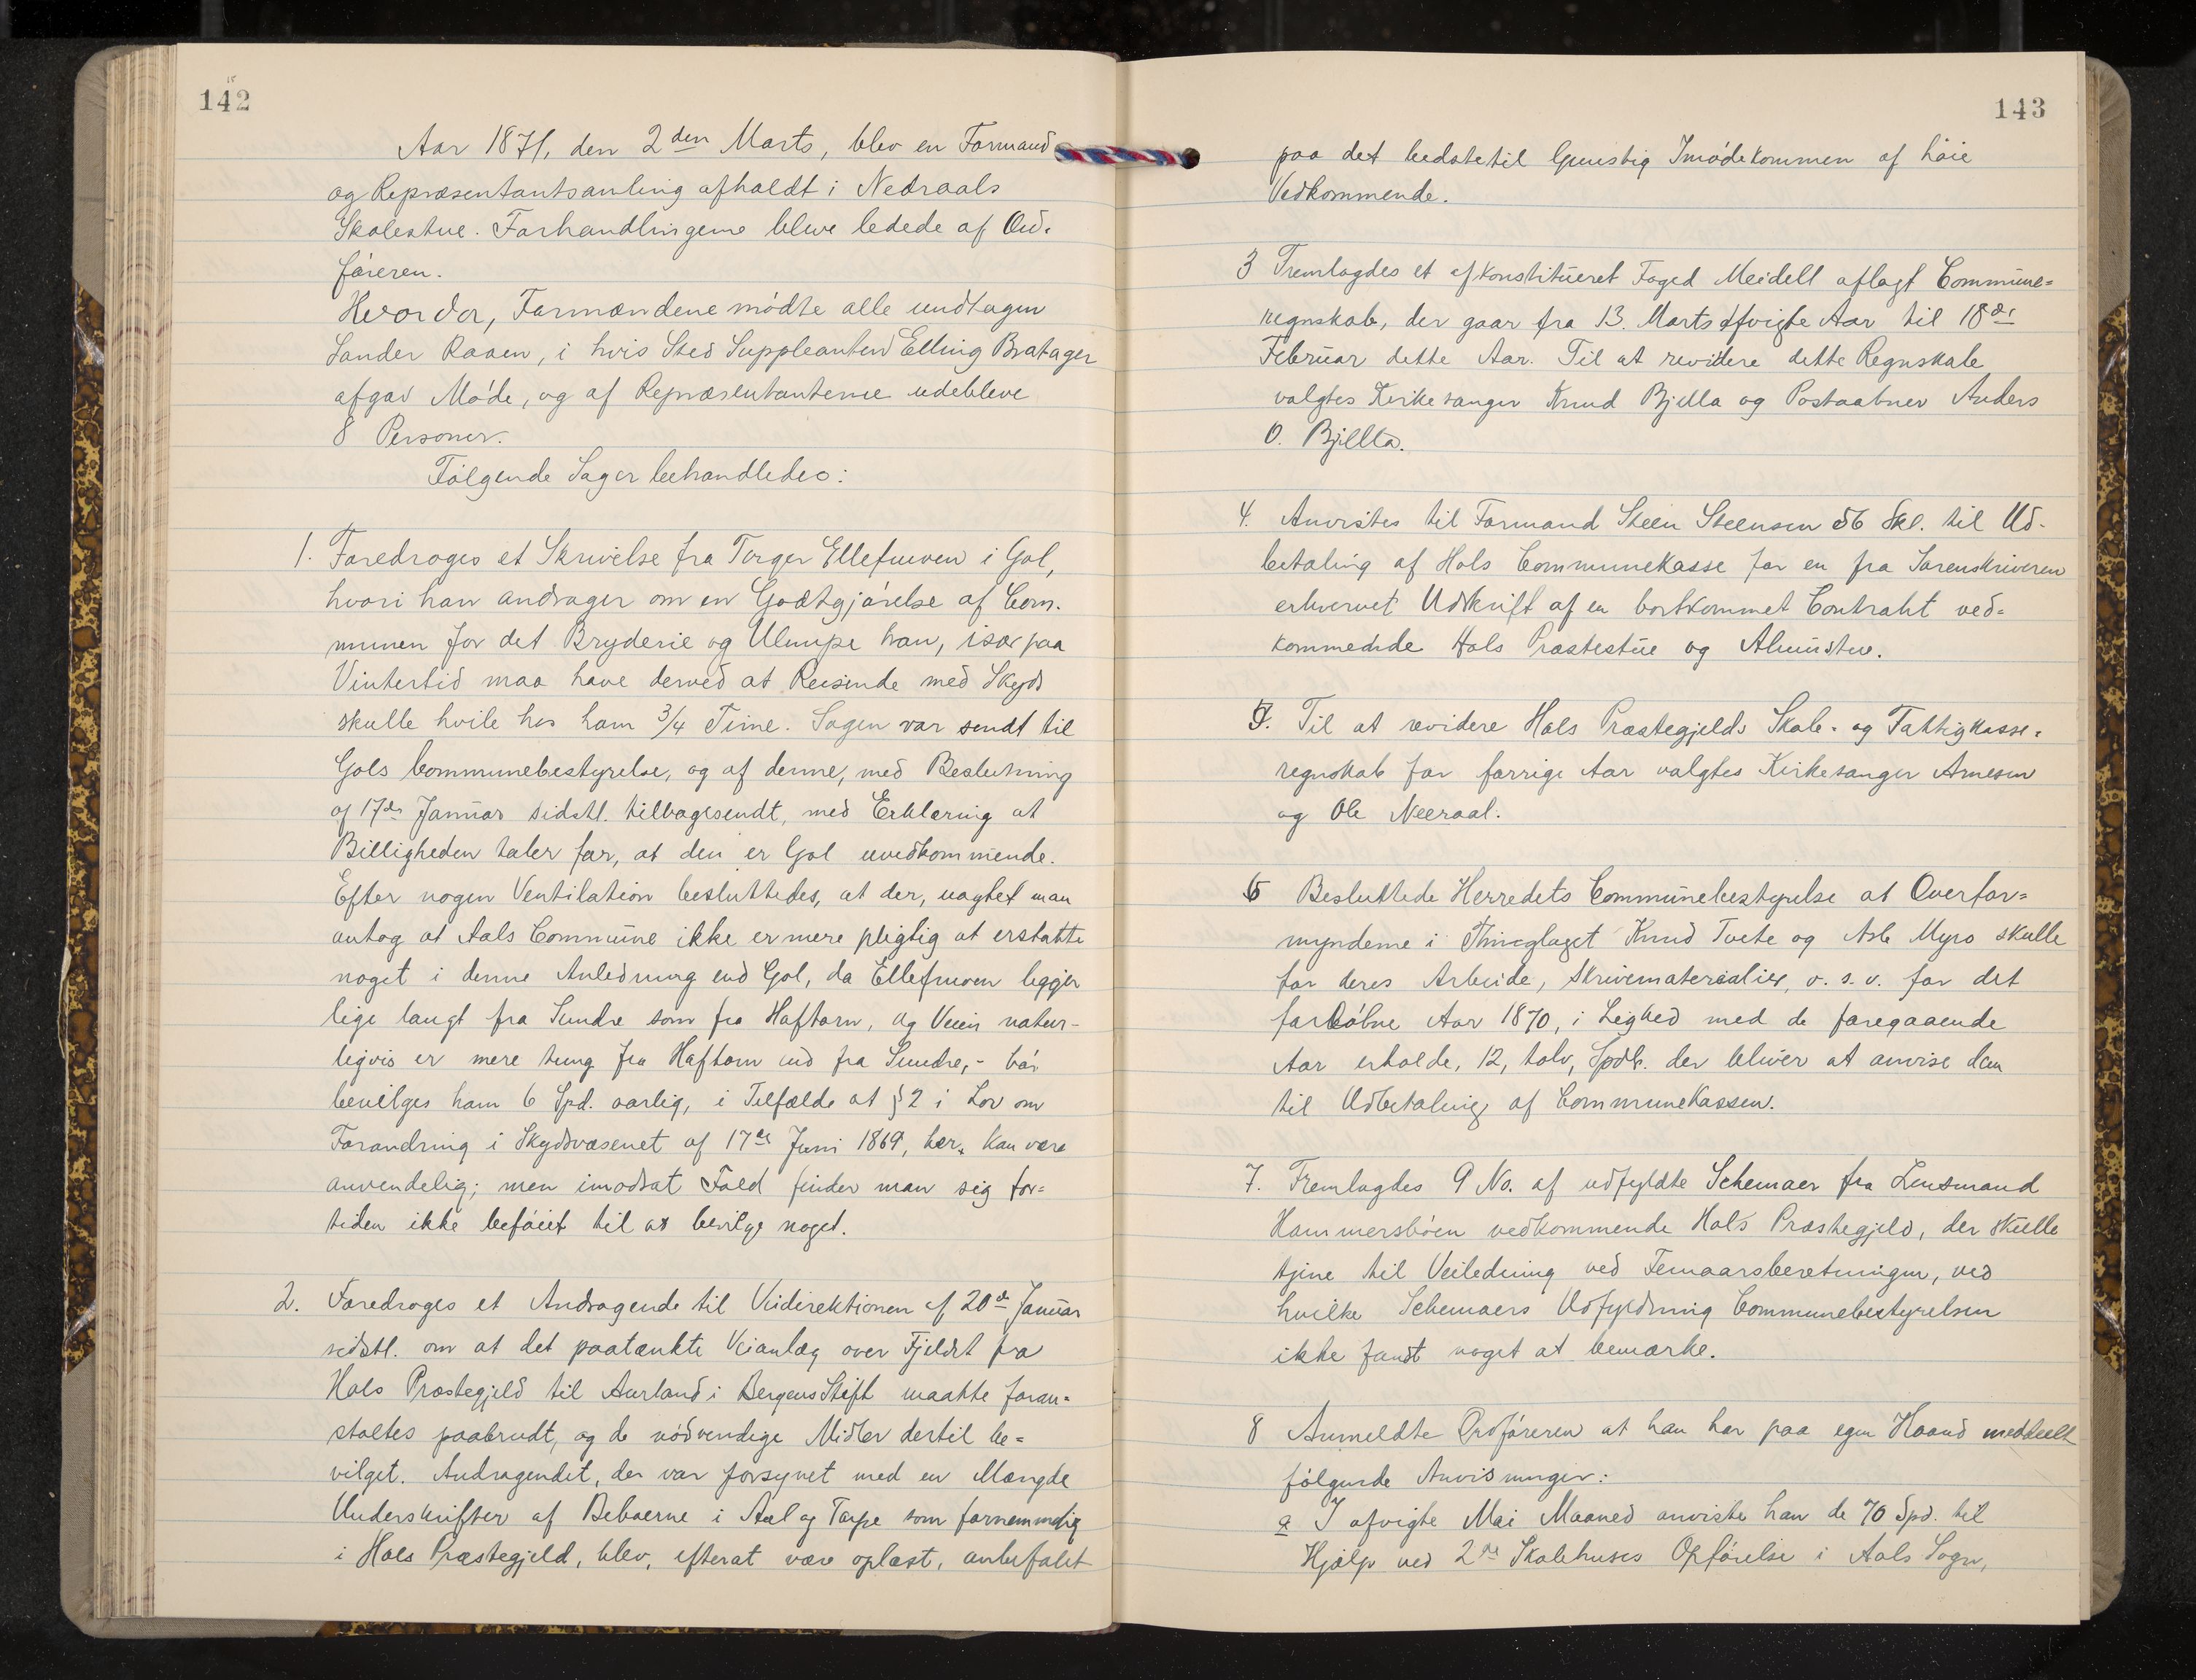 142
Aar 1871, den 2den Marts, blev en Formand
og Repræsentantsamling afholdt i Nedraals
Skolestue. Forhandlingerne bleve ledede af Ord-
føreren.
Hvorda, Formændene mødte alle undtagen
Sander Raaen, i hvis Sted Suppleanten Elling Bratager
afgav Møde, og af Repræsentanterne udebleve
8 Personer.
Følgende Sager behandledes:
1. Foredroges et Skrivelse fra Torger Ellefrueven i Gol,
hvori han andrager om en Godtgjørelse af Com-
munen for det Bryderie og Ulempe han, især paa
Vintertid maa have derved at Reisende med Skyds
skulle hvile hos ham 3/4 Time. Sagen var sendt til
Gols Communebestyrelse, og af denne, med Beslutning
af 17de Januar sidstl. tilbagesendt, med Erklæring at
Billigheden taler for, at den er Gol uvedkommende.
Efter nogen Ventilation besluttedes, at der, uagtet man
antog at Aals Commune ikke er mere pligtig at erstatte
noget i denne Anledning end Gol, da Ellefrueven ligger
lige langt fra Sundre som fra Haftorn, og Veien natur-
ligvis er mere tung fra Haftorn end fra Sundre, - bør
bevilges ham 6 Spd. aarlig, i Tilfælde at § 2 i Lov om
Forandring i Skydsvæsenet af 17de Juni 1869, her, kan være
anvendelig; men imodsat Fald finder man sig for-
tiden ikke beføiet til at bevilge noget.
2. Foredroges et Andragende til Veidirektionen af 20de Januar
sidstl. om at det paatænkte Veianlæg over Fjeldet fra
Hols Præstegjeld til Aurland i Bergens Stift maatte foran-
staltes paabrudt, og de nødvendige Midler dertil be-
vilget. Andragendet, der var forsynet med en Mængde
Underskrifter af Beboerne i Aal og Torpe som fornemmelig
i Hols Præstegjeld, blev, efterat være oplæst, anbefalet
143
paa det bedste til Gunstig Imødekommen af høie
Vedkommende.
3 Fremlagdes et af konstitueret Foged Meidell aflagt Commune-
regnskab, der gaar fra 13. Marts afvigte Aar til 18de
Februar dette Aar. Til at revidere dette Regnskab
valgtes Kirkesanger Knud Bjella og Postaabner Anders
O. Bjella.
4. Anvistes til Formand Steen Steensen 56 Skl. til Ud-
betaling af Hols Communekasse for en fra Sorenskriveren
erhvervet Udskrift af en bortkommet Contrakt ved-
kommende Hols Præstestue og Almustue.
5. Til at revidere Hols Præstegjelds Skole- og Fattigkasse-
regnskab for forrige Aar valgtes Kirkesanger Arnesen
og Ole Neeraal.
6 Besluttede Herredets Communebestyrelse at Overfor-
mynderne i Thinglaget Knud Tvete og Asle Myro skulle
for deres Arbeide, Skrivematerialier, o. s. v. for det
forløbne Aar 1870, i Lighed med de foregaaende
Aar erholde, 12, tolv, Spdlr. der bliver at anvise dem
til Udbetaling af Communekassen.
7. Fremlagdes 9 No. af udfyldte Schemaer fra Lensmand
Hammersbøen vedkommende Hols Præstegjeld, der skulle
tjene til Veiledning ved Femaarsberetningen, ved
hvilke Schemaers Udfyldning Communebestyrelsen
ikke fandt noget at bemærke.
8 Anmeldte Ordføreren at han har paa egen Haand meddeelt
følgende Anvisninger:
a I afvigte Mai Maaned anviste han de 70 Spd. til
Hjælp ved 2de Skolehuses Opførelse i Aals Sogn,